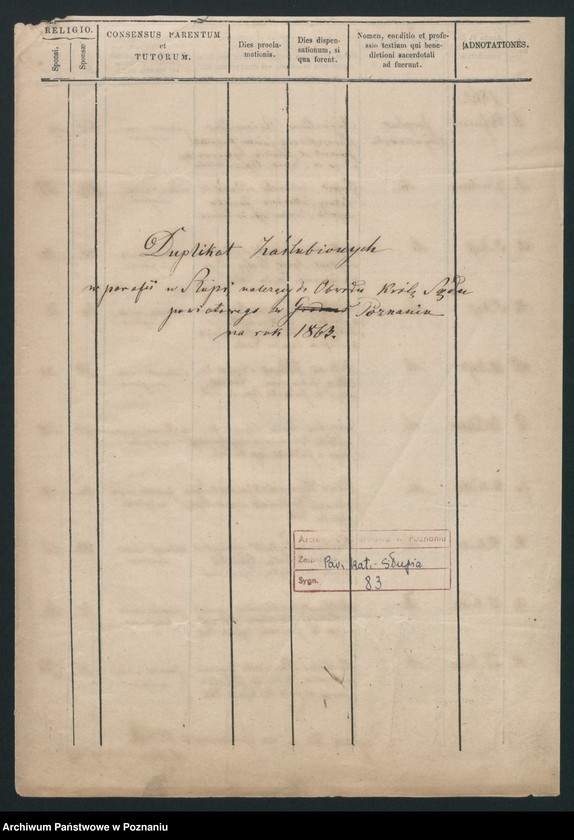 RELIGIO.
Sponsi.
Sponsae
CONSENSUS PARENTUM
et
TUTORUM.
Dies procla-
mationis.
Dies dispen-
sationum, si
qua forent.
Nomen, conditio et profe-
ssio testium qui bene-
dictioni sacerdotali
ad fuerunt.
ADNOTATIONES.
Duplikat Zaślubionych
w parafii w Słupi należący do Obwodu Król. Sądu
powiatowego w Poznaniu
na rok 1863.
Archiwum Państwowe w Poznaniu
Zesp. Par. kat. - Słupia
Sygn. 83
Archiwum Państwowe w Poznaniu